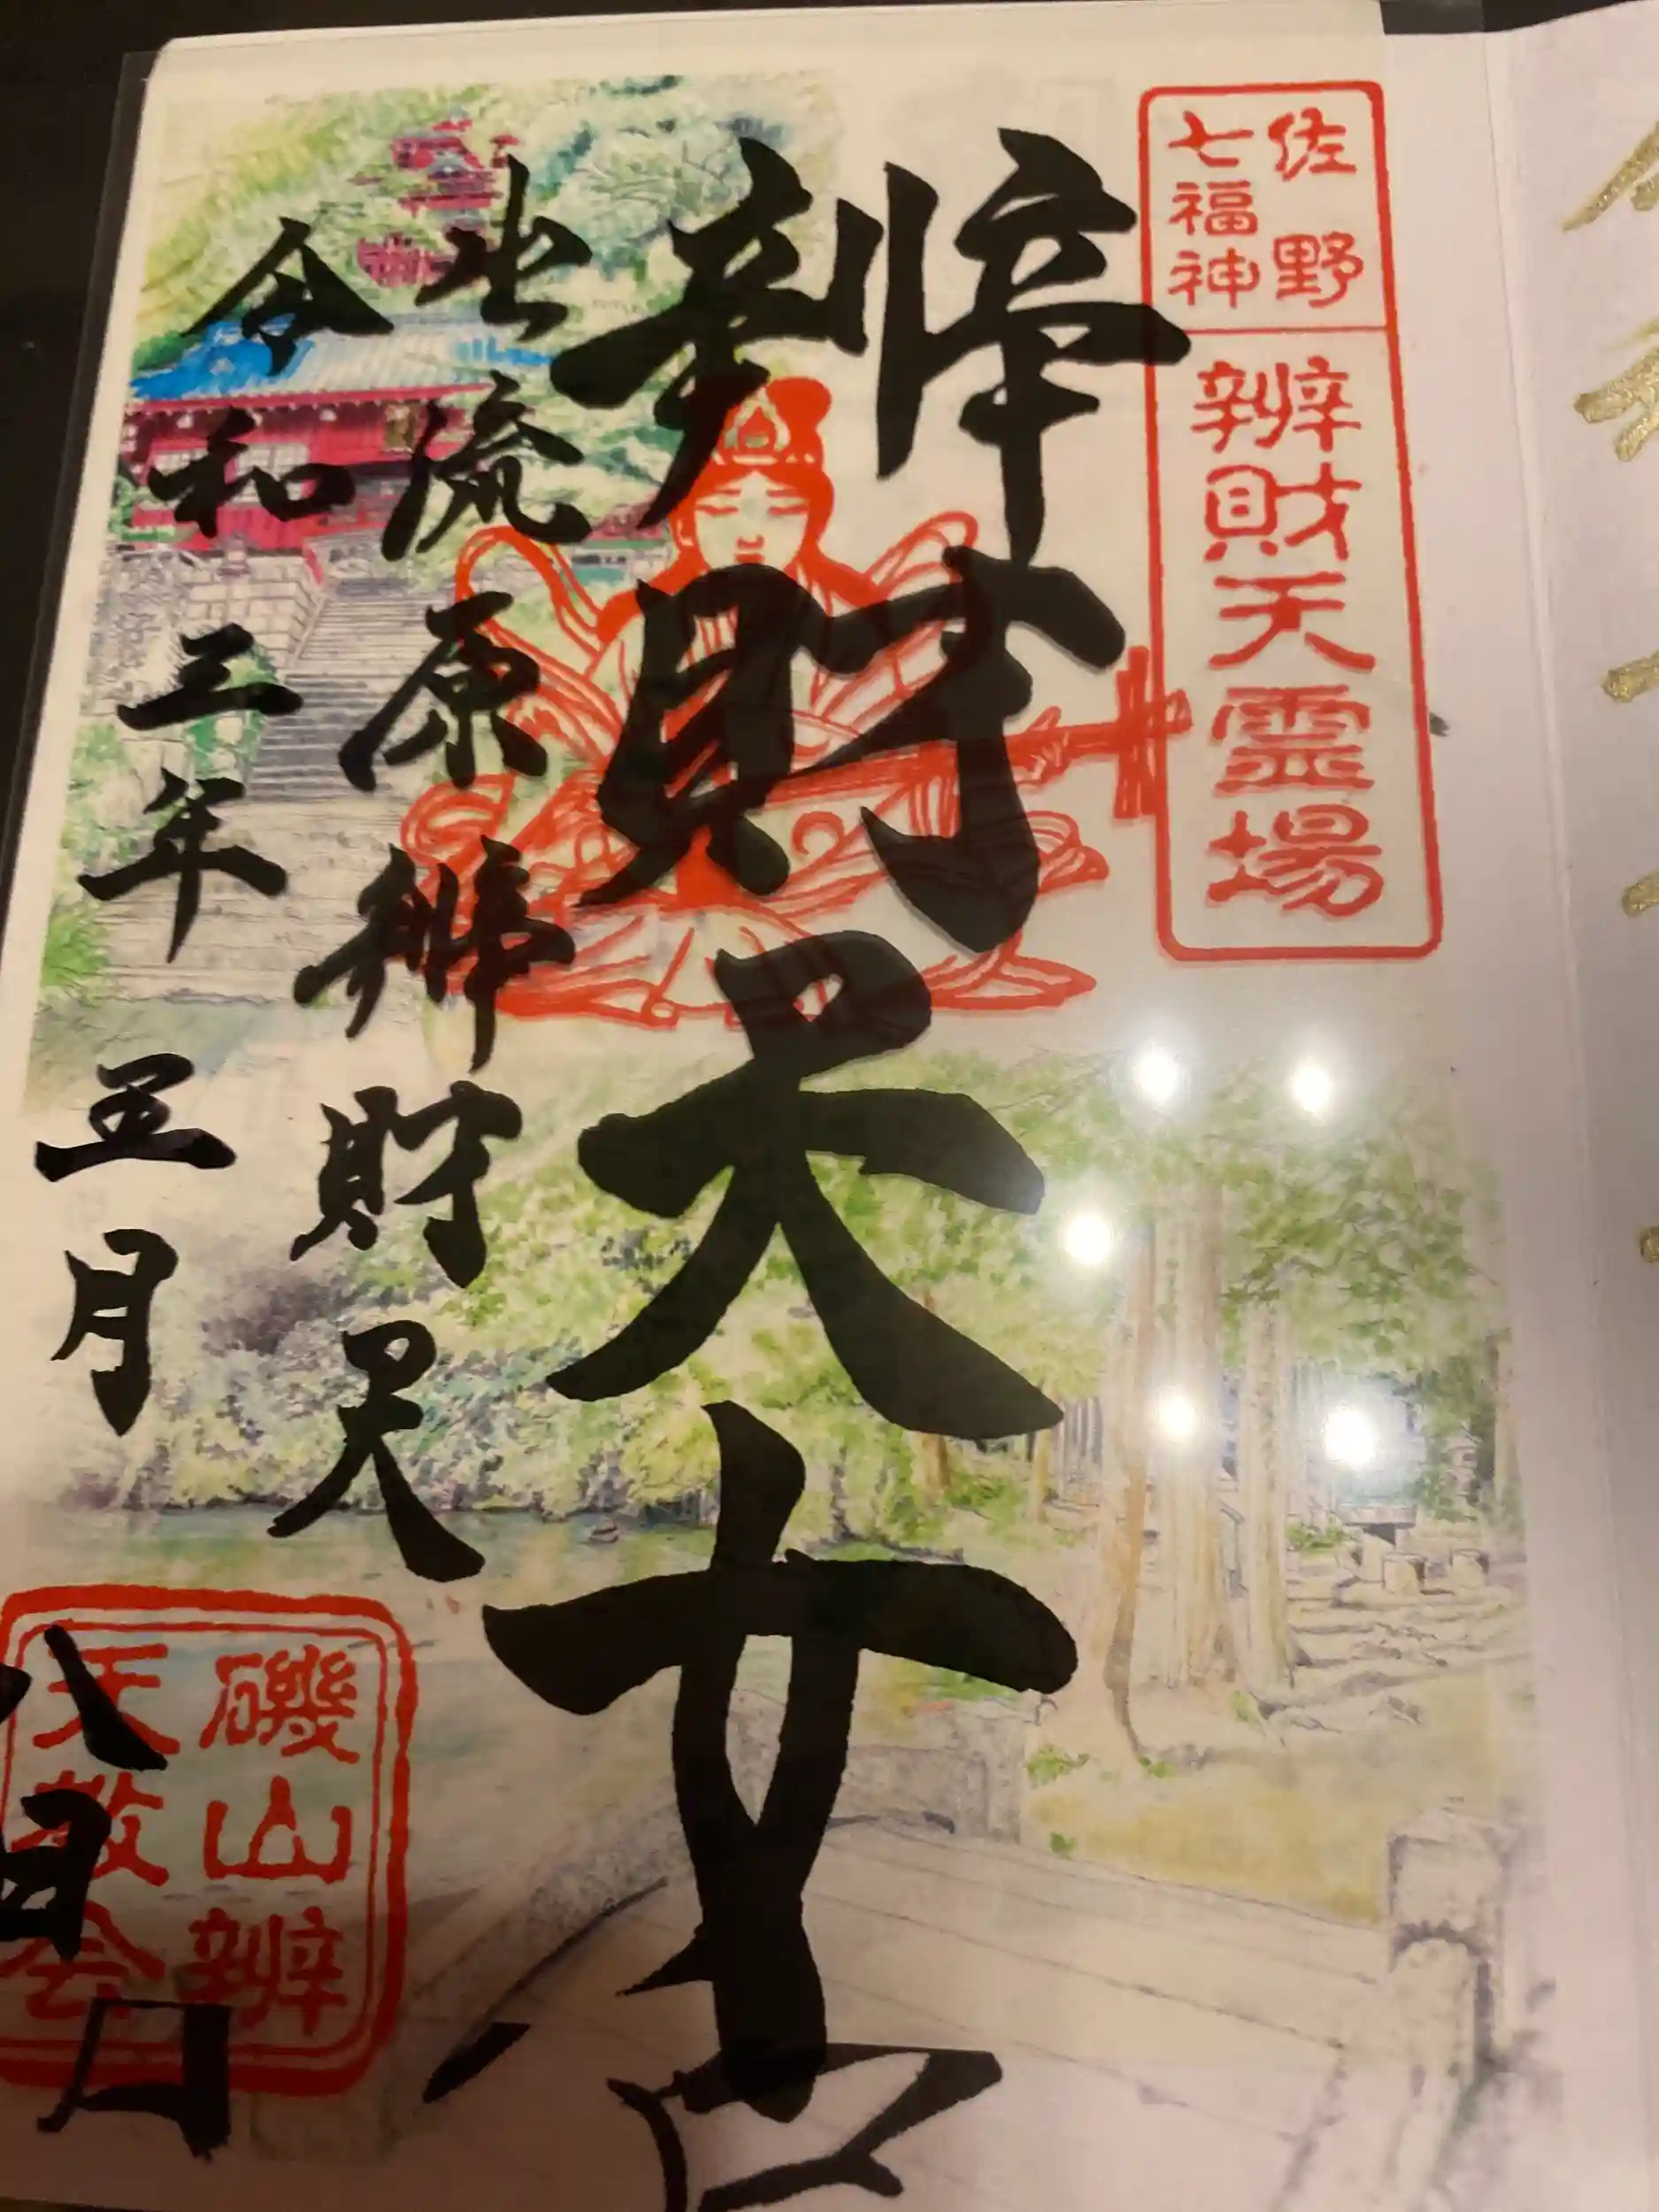 佐野
七福神
辨財天霊場
辨財天女
出流原辨財天
令和三年五月八日
磯山辨
天教会